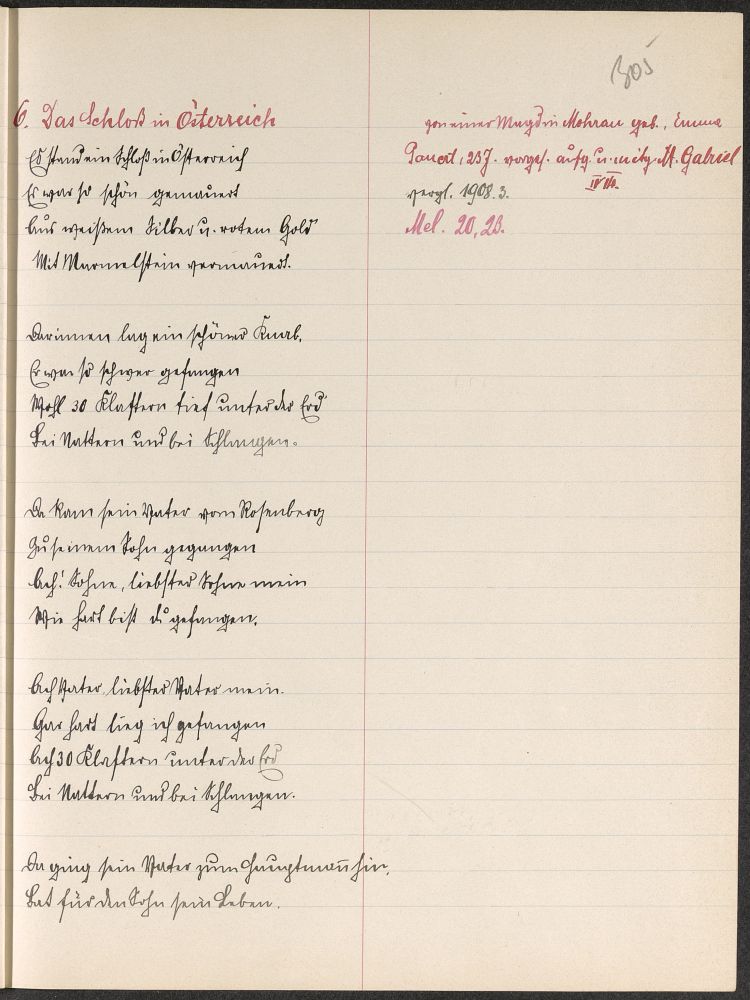 305
6. Das Schloß in Österreich
Es stand ein Schloß in Österreich
Es war so schön gemauert
Aus weißem Silber u. rotem Gold
Mit Marmelstein vermauert.
Darinnen lag ein schöner Knab,
Er war so schwer gefangen
Wohl 30 Klaftern tief unter der Erd
Bei Nattern und bei Schlangen.
Da kam sein Vater vom Rosenberg
Zu seinem Sohn gegangen
Ach! Sohne, liebster Sohne mein
Wie hart bist du gefangen.
Ach Vater, liebster Vater mein.
Gar hart lieg ich gefangen
Ach 30 Klaftern unter der Erd
Bei Nattern und bei Schlangen.
Da ging sein Vater zum Hauptmann hin,
Bat für den Sohn sein Leben.
von einer Magd in Mohrau geb., Emma
23J. vorges. aufg. u. mitg. A. Gabriel
vergl. 1908. 3.
Mel. 20, 23.